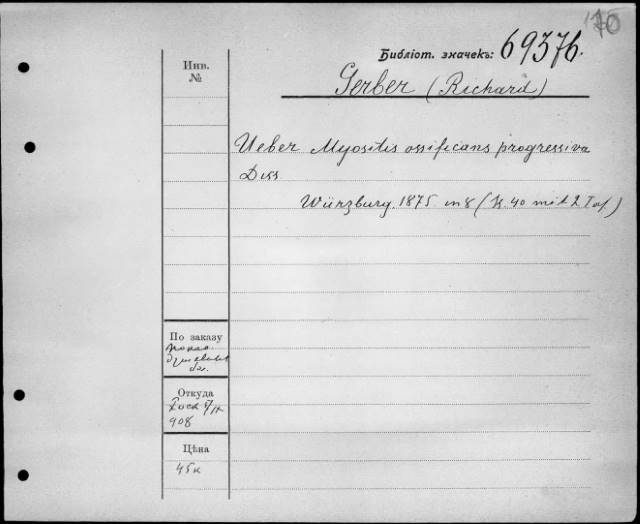 70
Библіот. значекъ: 69376.
Инв.
№
Gerber (Richard)
Ueber Myositis ossificans progressiva
Diss
Würzburg. 1875 in 8 (S. 40 mit 2 Taf.)
По заказу
Откуда
908
Цѣна
45к